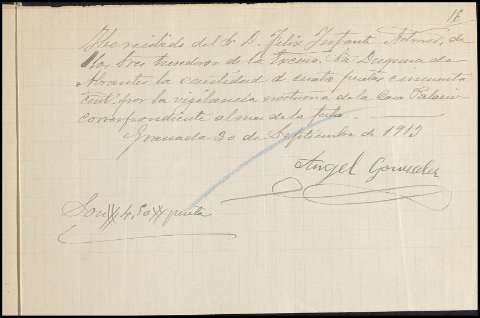 18
He recibido del Sr. D. Felix Infante Antunez, de
los tres herederos de la Excma. Sra. Duquesa de
Abrantes la cantidad de cuatro pesetas cincuenta
cent.s por la vigilancia nocturna de la Casa Palacio
correspondiente al mes de la fecha.
Granada 30 de Septiembre de 1913
Angel Gonzalez
Son # 4,50 # pesetas